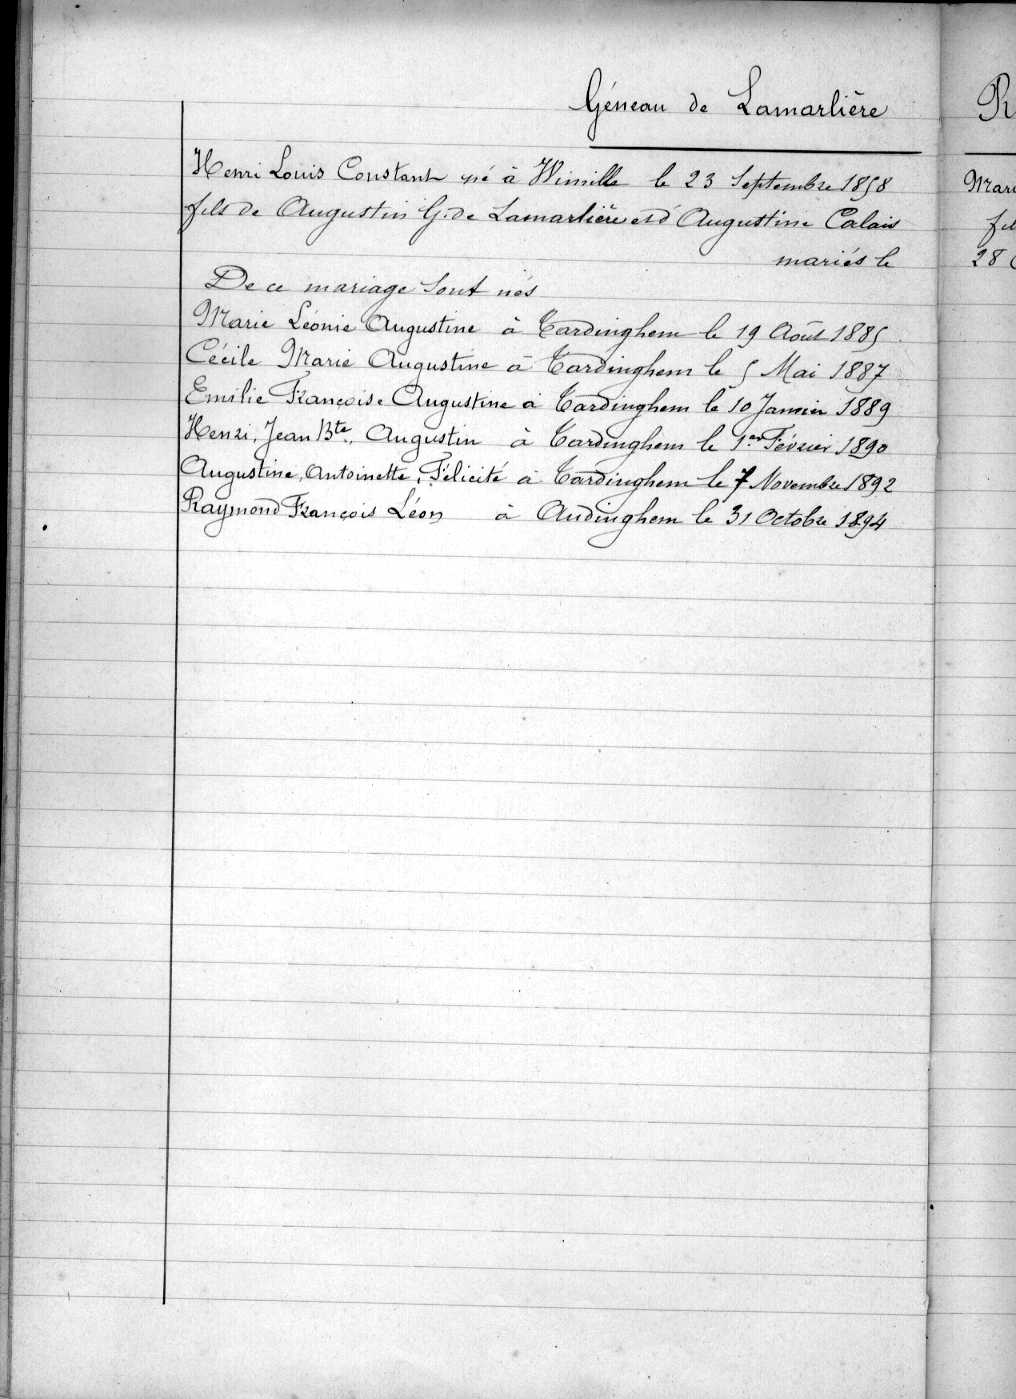 Géneau de Lamarlière
Henri Louis Constant né à Wimille le 23 Septembre 1858
fils de Augustin G. de Lamarlière et d'Augustine Calais
mariés le
De ce mariage sont nés
Marie Léonie Augustine à Tardinghem le 19 Août 1885.
Cécile Marie Augustine à Tardinghem le 5 Mai 1887
Emilie Françoise Augustine à Tardinghem le 10 Janvier 1889
Henri, Jean Bte, Augustin à Tardinghem le 1er Février 1890
Augustine, Antoinette, Félicité à Tardinghem le 7 Novembre 1892
Raymond François Léon à Audinghem le 31 Octobre 1894
R
Mari
fil
28